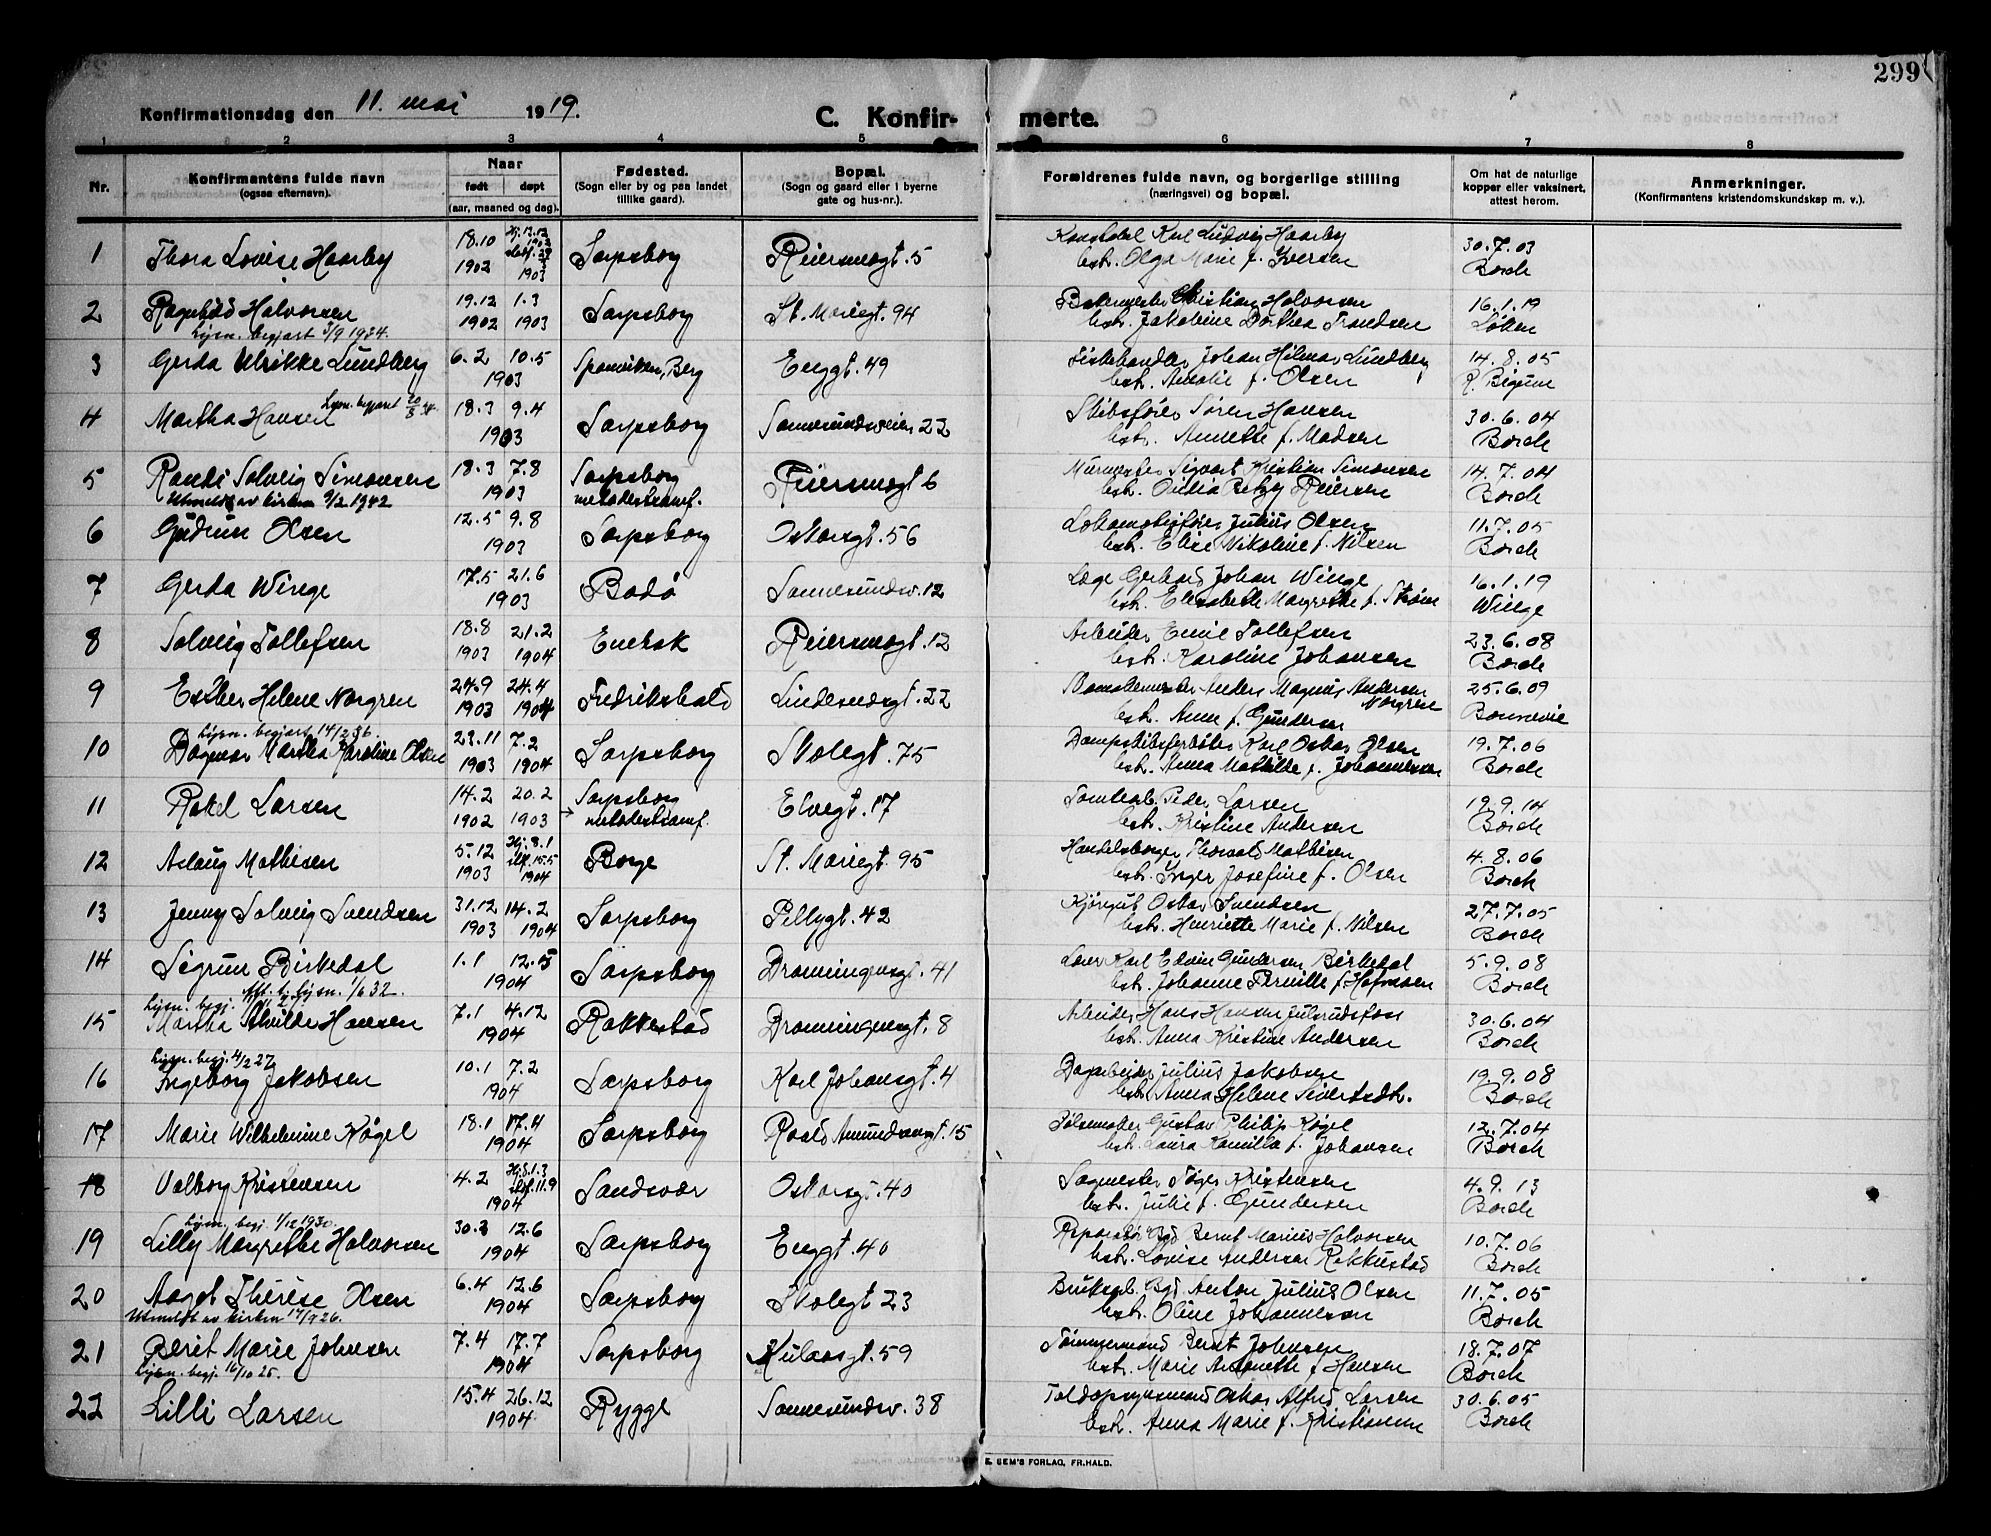 299
Konfirmationsdag den 11. mai 1919.
C. Konfirmerte.
1 2 3 4 5 6 7 8
Nr.
Konfirmantens fulde navn
(ogsaa efternavn).
Naar
født døpt
(aar, maaned og dag).
Fødested.
(Sogn eller by og paa landet
tillike gaard).
Bopæl.
(Sogn og gaard eller i byerne
gate og hus-nr.).
Forældrenes fulde navn, og borgerlige stilling
(næringsvei) og bopæl.
Om hat de naturlige
kopper eller vaksinert,
attest herom.
Anmerkninger.
(Konfirmantens kristendomskundskap m. v.).
1 Thora Lovise Haarby 18.10 1902 Hj. 12.12 1902 1903 Sarpsborg Reiersensgt. 5 Karl Ludvig Haarby 30.7.03
hstr. Olga Marie f. Iversen Borch
2 Ragnhild Halvorsen 19.12 1902 1.3 1903 Sarpsborg St. Mariegt. 94 Bakermester Kristian Halvorsen 16.1.19
Lysn. begjært 3/9 1924. hstr. Jakobine Dorthea Trandsen Løken
3 Gerda Ulrikke Lundberg 6.2 10.5 1903 Sponviken, Berg Enggt. 49 Fiskehandler Johan Hilmar Lundberg 14.8.05
hstr. Amalie f. Olsen R. Bigum
4 Martha Hansen Lysn. begjært 18.3 9.4 1903 Sarpsborg Sannesundsveien 22 Skibsfører Søren Hansen 30.6.04
hstr. Annette f. Madsen Borch
5 Randi Solveig Simonsen 18.3 7.8 1903 Sarpsborg metodistsamf. Reiersensgt 6 Murmester Sigvart Kristian Simonsen 14.7.04
Utmeldt av kirken 9/2 1942 hstr. Betzy Reiersen Borch
6 Gudrun Olsen 12.5 9.8 1903 Sarpsborg Oskarsgt. 56 Lokomotivfører Julius Olsen 11.7.05
hstr. Elise Nikoline f. Nilsen Borch
7 Gerda Winge 17.5 21.6 1903 Bodø Sannesundsv. 12 Læge Gerhard Johan Winge 16.1.19
hstr. Elisabeth Margrethe f. Strøm Winge
8 Solveig Tollefsen 18.8 1903 21.2 1904 Enebak Reiersensgt. 12 Arbeider Emil Tollefsen 23.6.08
hstr. Karoline Johansen Borch
9 Esther Helene Norgren 24.9 1903 24.4 1904 Fredrikshald Lindesundsgt. 22 Anders Magnus Andersen Norgren 25.6.09
hstr. Anna f. Gundersen Bonnevie
Lysn. begjært 14/2 36.
10 Dagmar Martha Karoline Olsen 23.11 1903 7.2 1904 Sarpsborg Skolegt. 75 Dampskibsfyrbøter Karl Oskar Olsen 19.7.06
hstr. Anna Mathilde f. Johannessen Borch
11 Rakel Larsen 14.2 1902 20.2 1903 Sarpsborg metodistsamf. Elvegt. 17 Tomtearb. Peder Larsen 19.9.14
hstr. Kristine Andersen Borch
12 Aslaug Mathisen 5.12 1903 Hj. 8.1 stf. 15.5 1904 Borge St. Mariegt. 95 Handelsborger Thorvald Mathisen 4.8.06
hstr. Inger Josefine f. Olsen Borch
13 Jenny Solveig Svendsen 31.12 1903 14.2 1904 Sarpsborg Pellygt. 42 Kjøregut Oskar Svendsen 27.7.05
hstr. Henriette Marie f. Nilsen Borch
14 Sigrun Birkedal 1.1 12.5 1904 Sarpsborg Dronningensgt. 41 Karl Edvin Gundersen Birkedal 5.9.08
hstr. Johanne Pernille f. Hofmoen Borch
Lysn. begj. Att. t. lysn. 1/6 32.
15 Martha Alvilde Hansen 7.1 4.12 1904 Rakkestad Dronningensgt. 8 Arbeider Hans Hansen Julsrudsfoss 30.6.04
hstr. Anna Kristine Andersen Borch
Lysn. begj. 4/2 27
16 Ingeborg Jakobsen 10.1 7.2 1904 Sarpsborg Karl Johansgt. 4 Dagarbeider Julius Jakobsen 19.9.08
hstr. Anna Helene Sivertsdtr. Borch
17 Marie Wilhelmine Kögel 18.1 17.4 1904 Sarpsborg Roald Amundsensgt. 15 Pølsemaker Gustav Philip Kögel 12.7.04
hstr. Laura Kamilla f. Johansen Borch
18 Valborg Kristensen 4.2 Hj. 8.1.3 stf. 11.9 1904 Sandsvær Oskarsgt. 40 Sagmester Kristensen 4.9.13
hstr. Julie f. Gundersen Borch
Lysn. begj. 1/12 1930.
19 Lilly Margrethe Halvorsen 30.3 12.6 1904 Sarpsborg Enggt. 40 Reparatør Bgd Bernt Marius Halvorsen 10.7.06
hstr. Lovise Andersen Rakkestad Borch
20 Aagot Therese Olsen 6.4 12.6 1904 Sarpsborg Skolegt 23 Bruksarb. Bgd Anton Julius Olsen 11.7.05
Utmeldt av kirken 17/9 26. hstr. Oline Johannessen Borch
21 Berit Marie Johnsen 7.4 17.7 1904 Sarpsborg Kulaasgt. 59 Tømmermand Berdt Johnsen 18.7.07
Lysn. begj. 16/10 25. hstr. Marie Antonette f. Hansen Borch
22 Lilli Larsen 15.4 26.12 1904 Rygge Sannesundsv. 38 Toldopsynsmand Oskar Alfred Larsen 30.6.05
hstr. Anna Marie f. Kristiansen Borch
E. SEM'S FORLAG, FR.HALD.